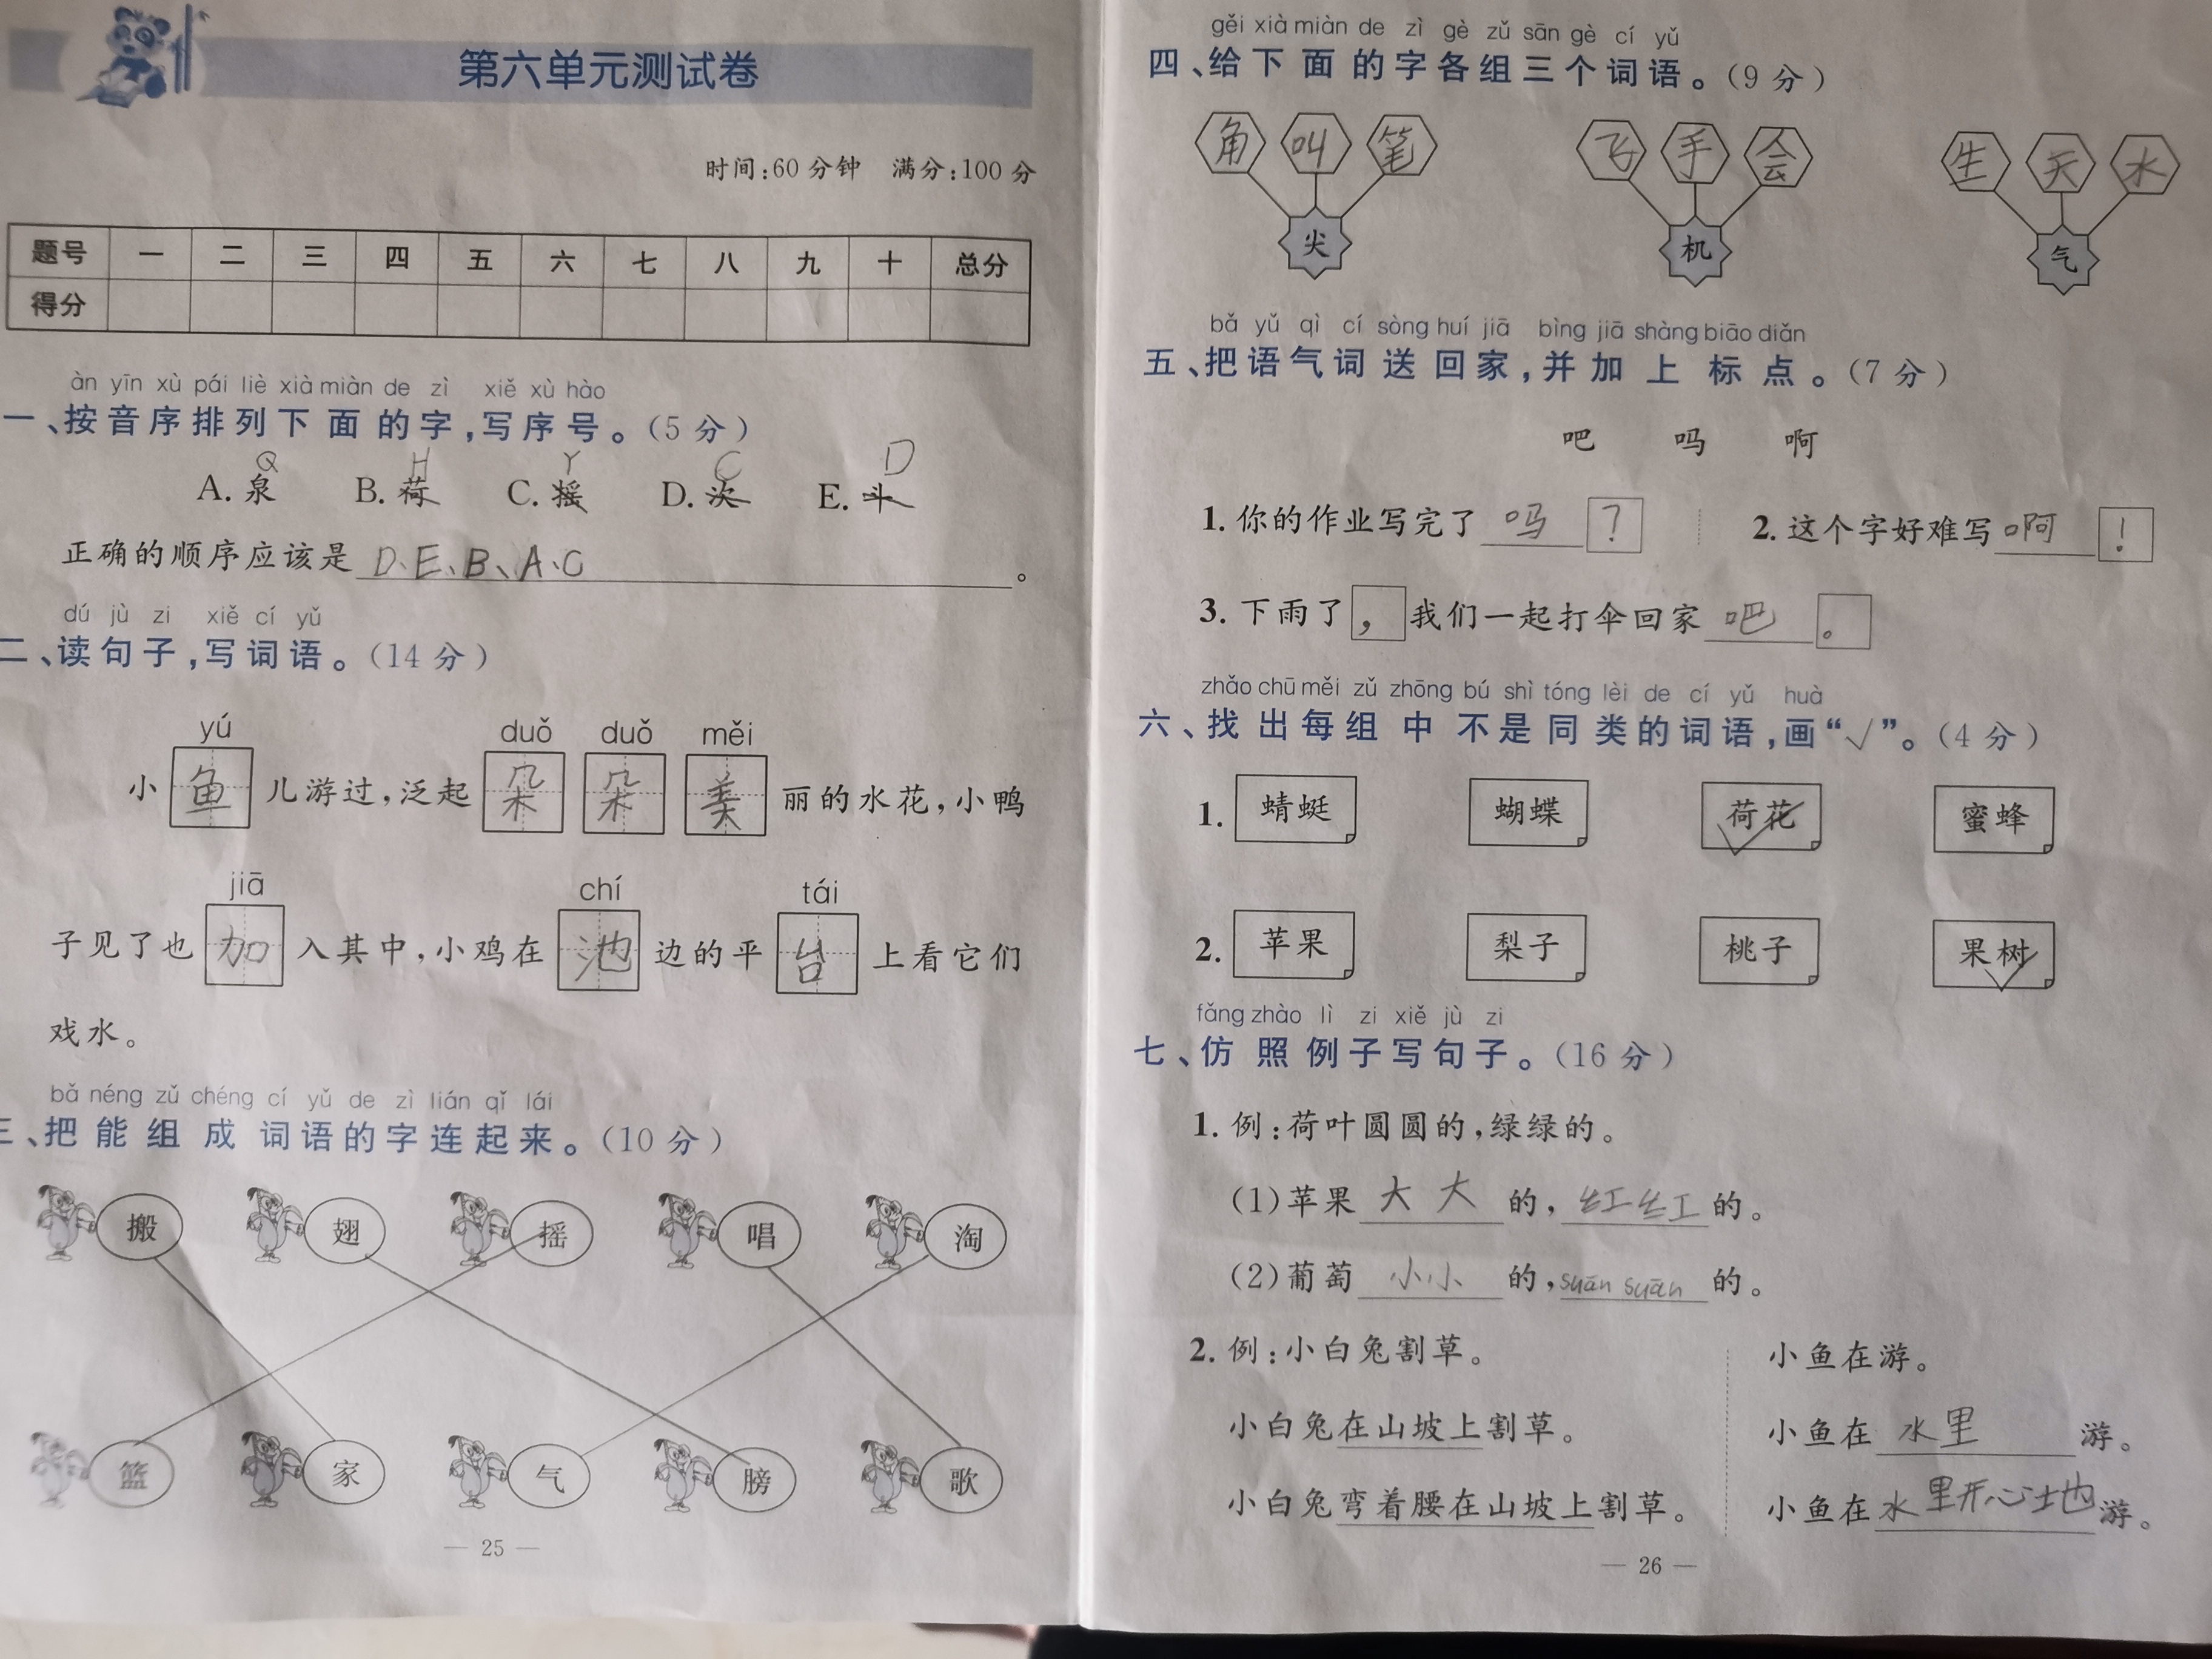 第六单元测试卷
时间:60分钟 满分:100分
题号 一 二 三 四 五 六 七 八 九 十 总分
得分
àn yīn xù pái liè xià miàn de zì xiě xù hào
一、按音序排列下面的字,写序号。(5分)
Q H Y C D
A.泉 B.荷 C.摇 D.次 E.斗
正确的顺序应该是 D、E、B、A、C。
dú jù zi xiě cí yǔ
二、读句子,写词语。(14分)
yú duǒ duǒ měi
小鱼儿游过,泛起朵朵美丽的水花,小鸭
jiā chí tái
子见了也加入其中,小鸡在池边的平台上看它们
戏水。
bǎ néng zǔ chéng cí yǔ de zì lián qǐ lái
三、把能组成词语的字连起来。(10分)
搬 翅 摇 唱 淘
篮 家 气 膀 歌
— 25 —
gěi xià miàn de zì gè zǔ sān gè cí yǔ
四、给下面的字各组三个词语。(9分)
角 叫 笔 飞 手 会 生 天 水
尖 机 气
bǎ yǔ qì cí sòng huí jiā bìng jiā shàng biāo diǎn
五、把语气词送回家,并加上标点。(7分)
吧 吗 啊
1.你的作业写完了 吗 ? 2.这个字好难写 啊 !
3.下雨了 , 我们一起打伞回家 吧 。
zhǎo chū měi zǔ zhōng bú shì tóng lèi de cí yǔ huà
六、找出每组中不是同类的词语,画“√”。(4分)
1. 蜻蜓 蝴蝶 荷花 √ 蜜蜂
2. 苹果 梨子 桃子 果树 √
fǎng zhào lì zi xiě jù zi
七、仿照例子写句子。(16分)
1.例:荷叶圆圆的,绿绿的。
(1)苹果 大大 的, 红红 的。
(2)葡萄 小小 的, suān suān 的。
2.例:小白兔割草。 小鱼在游。
小白兔在山坡上割草。 小鱼在 水里 游。
小白兔弯着腰在山坡上割草。 小鱼在水里开心地游。
— 26 —